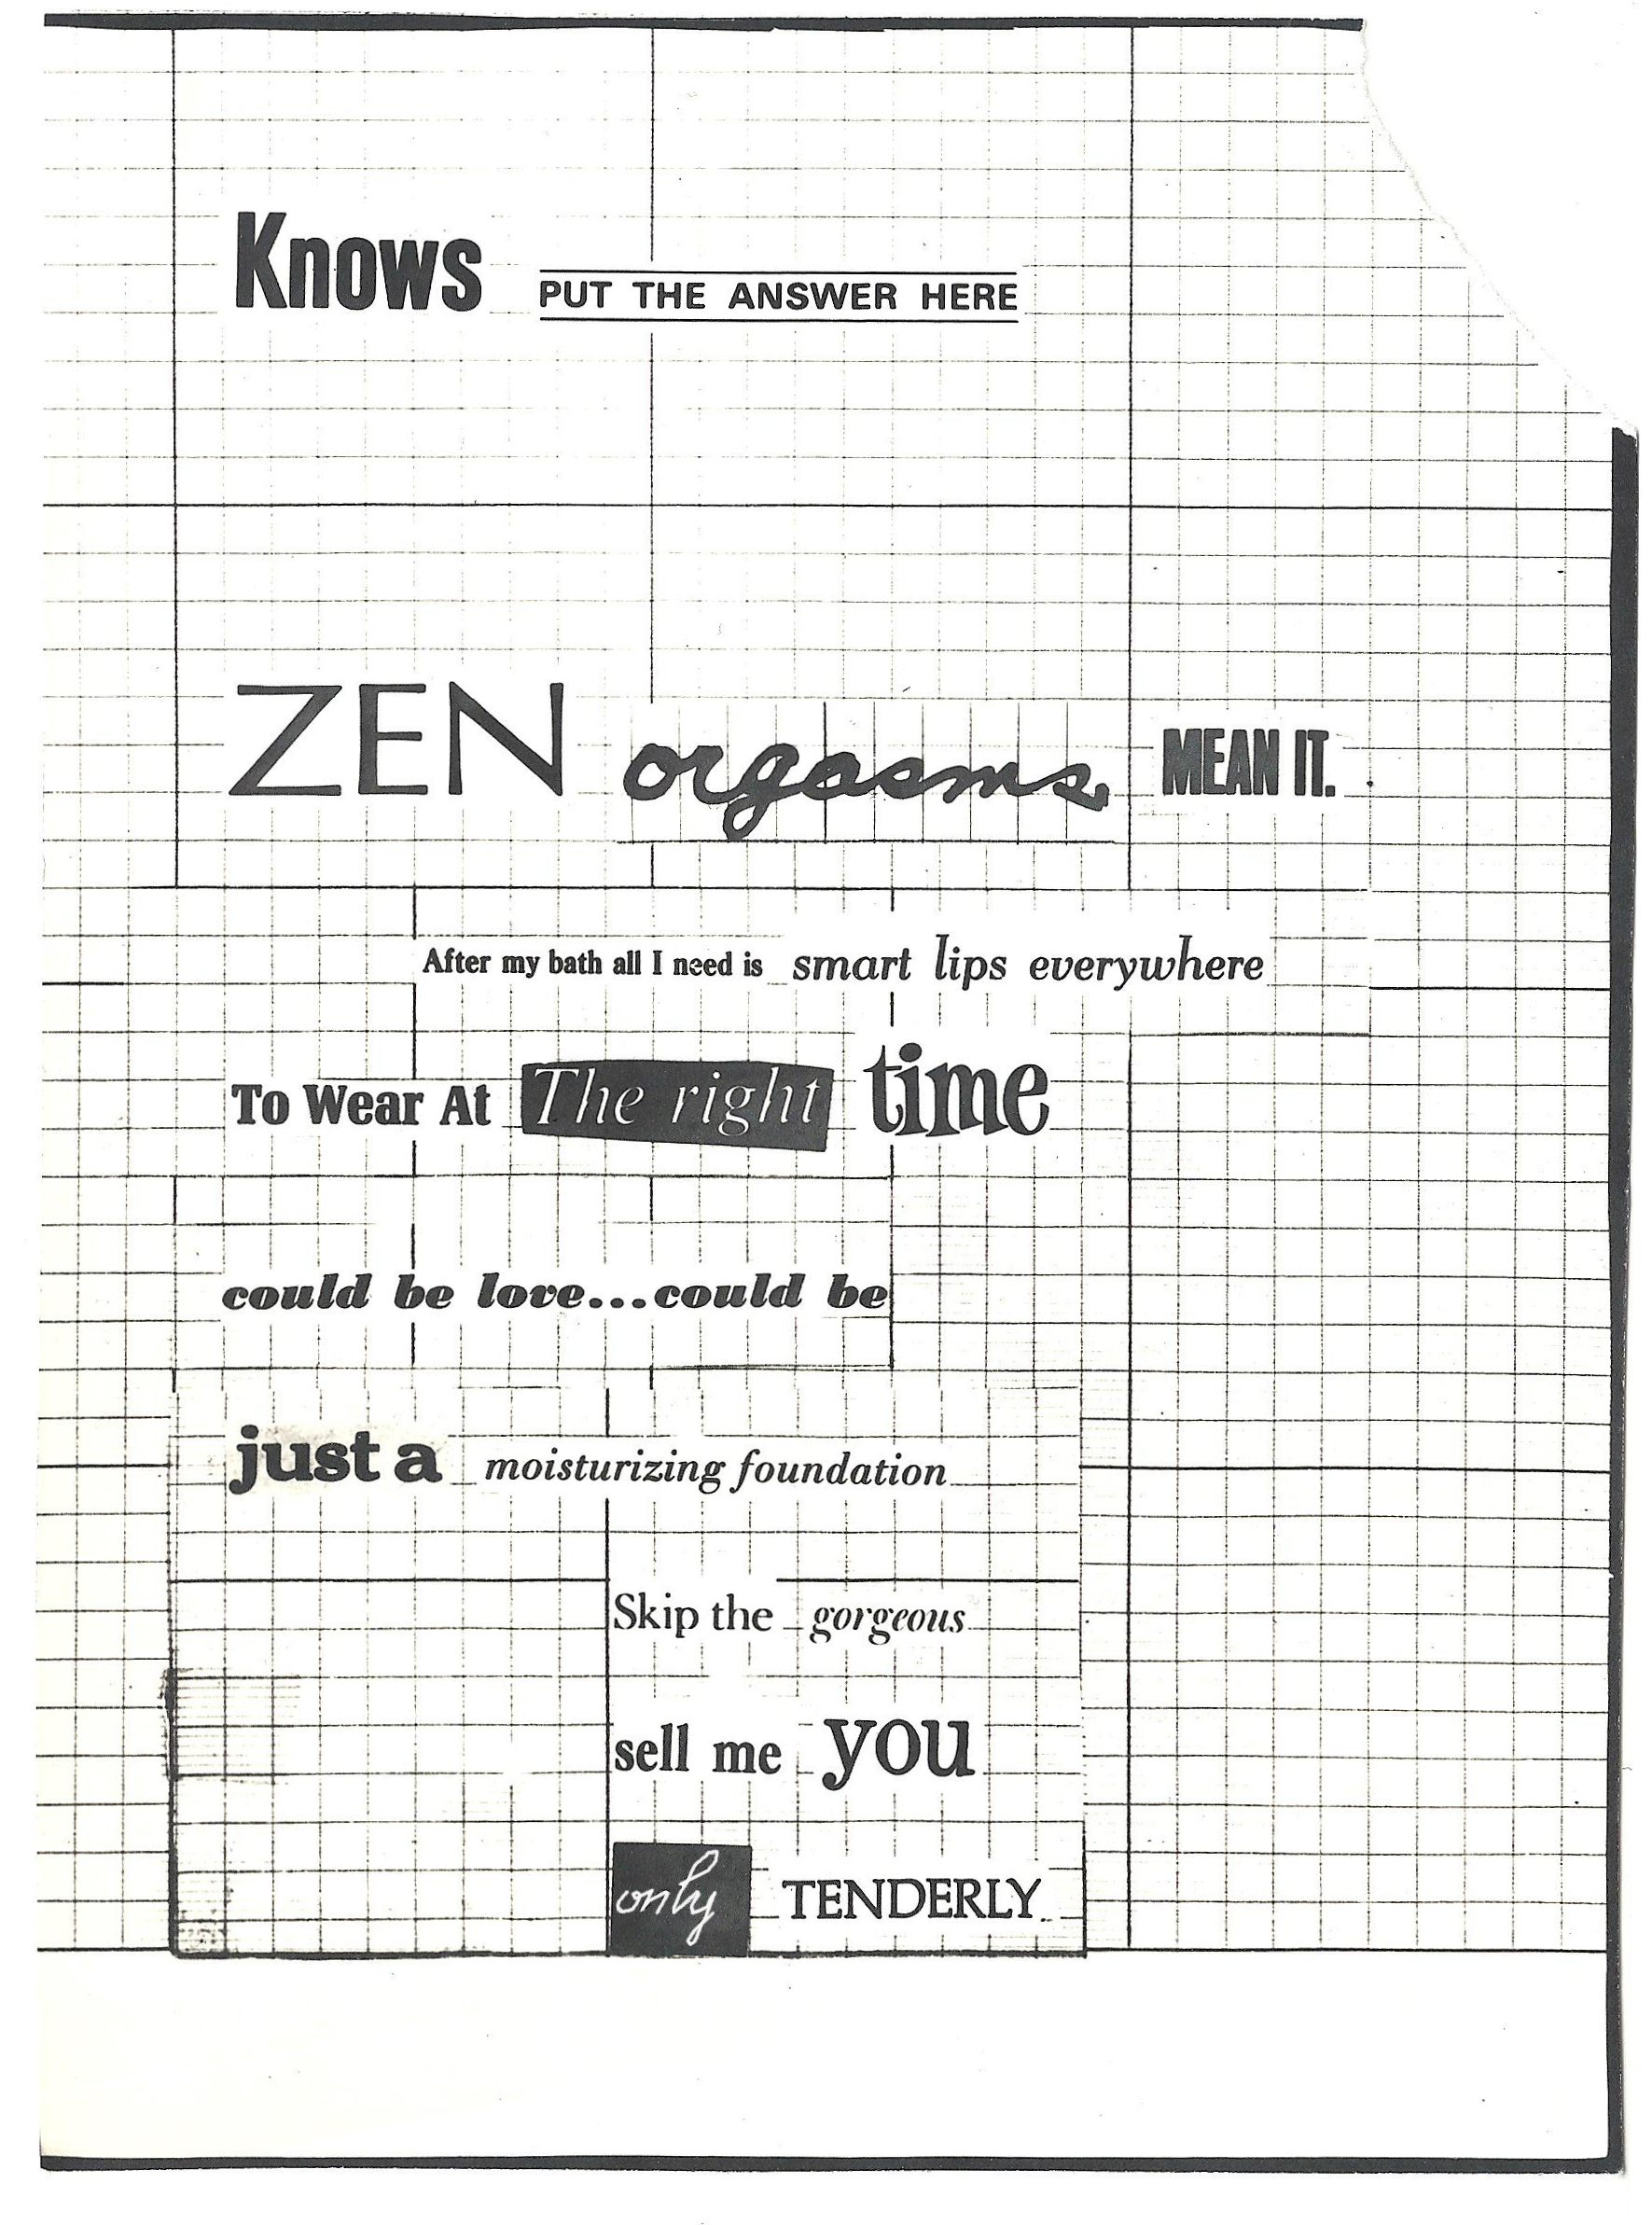 Knows PUT THE ANSWER HERE
ZEN orgasms MEAN IT.
After my bath all I need is smart lips everywhere
To Wear At The right time
could be love...could be
just a moisturizing foundation
Skip the gorgeous
sell me you
only TENDERLY